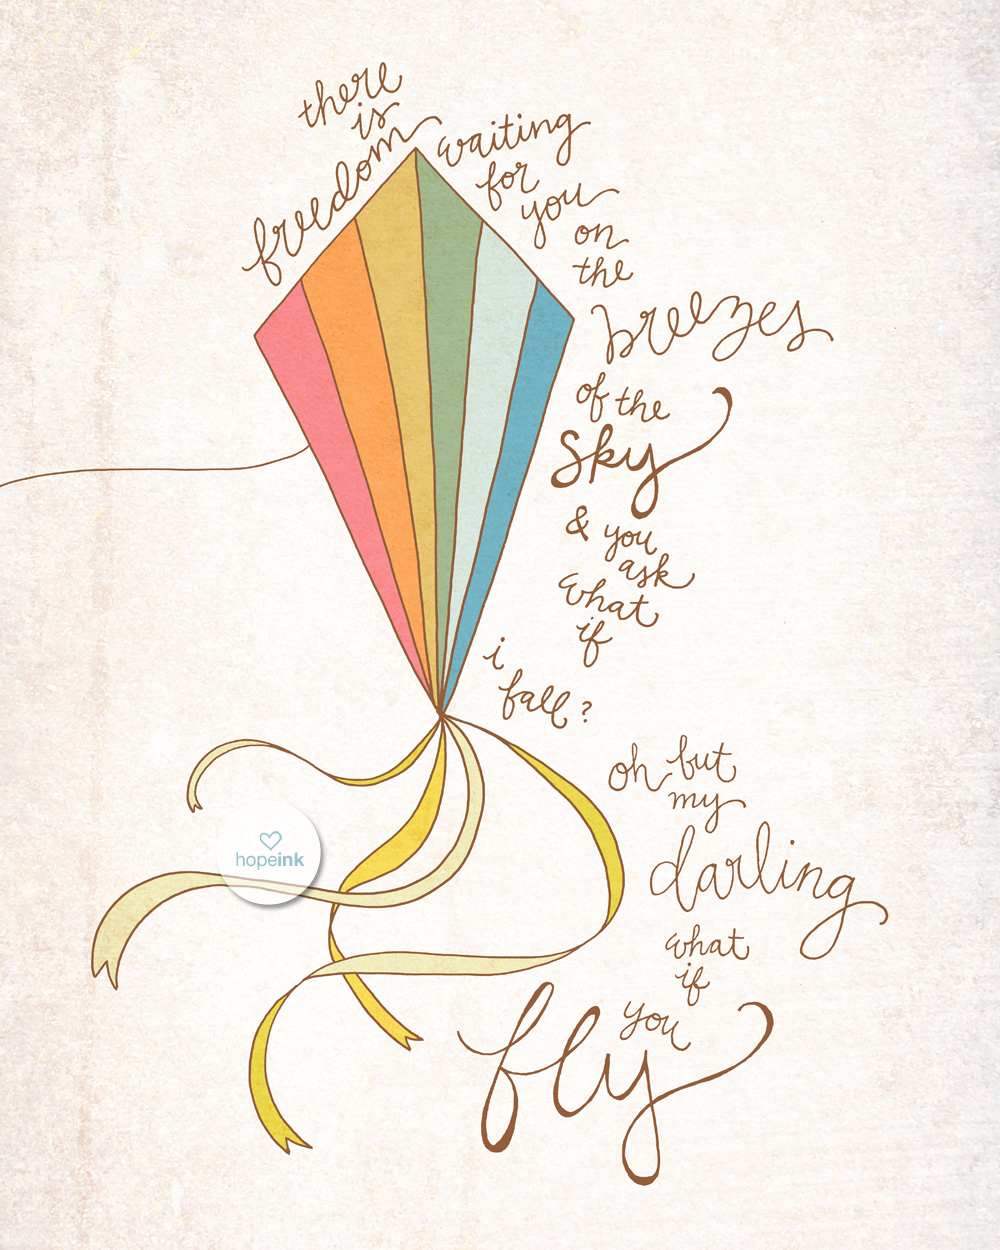 there
is
freedom
waiting
for
you
on
the
breezes
of the
sky
& you
ask
what
if
i
fall?
oh but
my
darling
what
if
you
fly
hopeink